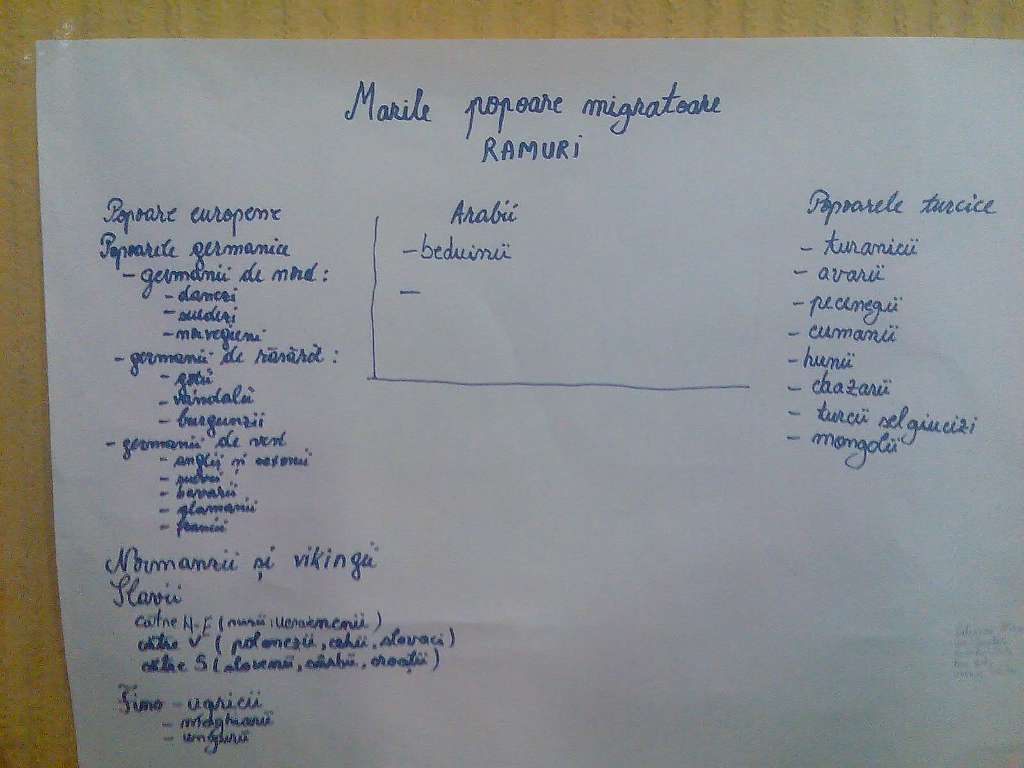 Marile popoare migratoare
RAMURI
Popoare europene
Popoarele germanice
- germanii de nord :
- danezi
- suedezi
- norvegieni
- germanii de răsărit :
- goții
- vandalii
- burgunzii
- germanii de vest
- anglii și saxonii
- suevii
- bavarii
- alamanii
- francii
Normanzii și vikingii
Slavii
către N-E (rușii, ucrainenii)
către V (polonezii, cehii, slovaci)
către S (slovenii, sârbii, croații)
Fino - ugricii
- maghiarii
- ungurii
Arabii
- beduinii
-
Popoarele turcice
- turanicii
- avarii
- pecenegii
- cumanii
- hunii
- chazarii
- turcii selgiucizi
- mongolii